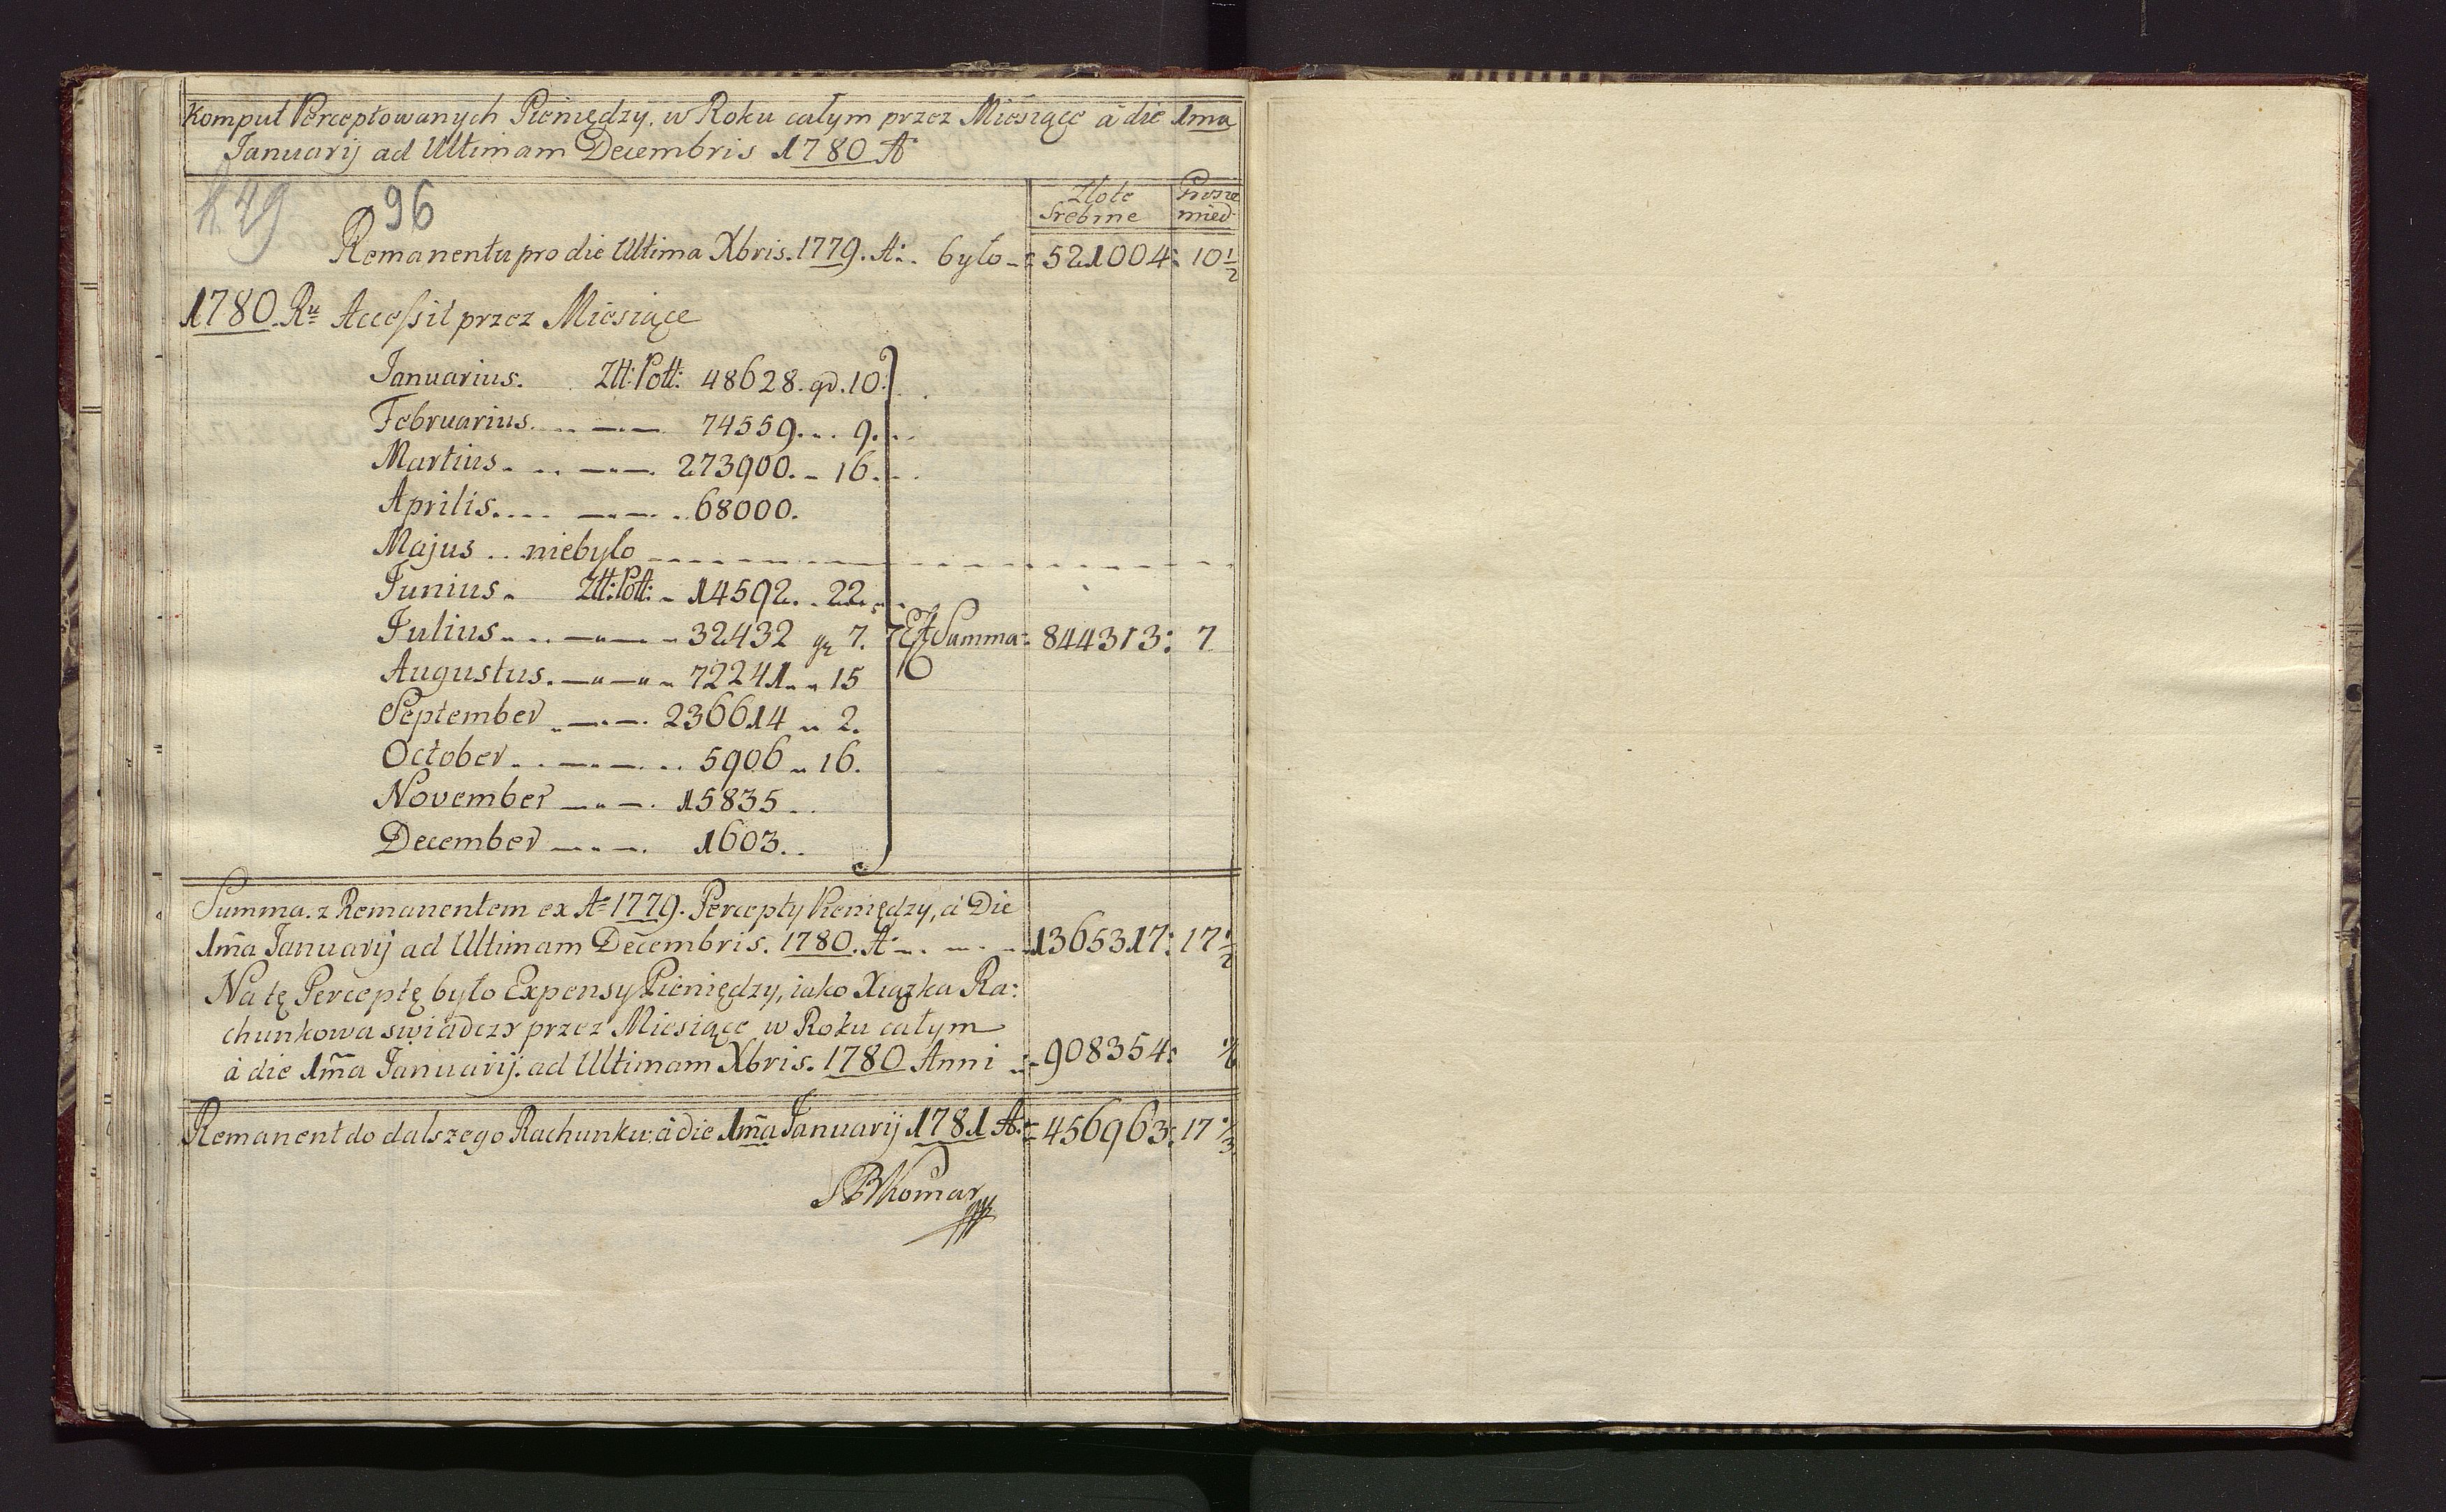 Komput Perceptowanych Pieniędzy. w Roku całym przez Miesiące à die 1ma
Januarij ad Ultimam Decembris 1780 A
k.49 96
Złote Grosze
Srebrne mied.
Remanentu pro die Ultima Xbris. 1779. A:. było - 521004: 10 1/2
1780. Ru Accessit przez Miesiące
Januarius. Ztt: Poll: 48628. gr. 10.
Februarius. 74559... 9.
Martius. 273900. - 16.
Aprilis. 68000.
Majus .. niebyło
Junius. Ztt: Poll: - 14592. . 22.
Julius 32432 gr 7. Est Summa: 844313: 7
Augustus. 72241. 15
September 236614 " 2.
October 5906 " 16.
November 15835
December 1603.
Summa. z Remanentem ex Ao 1779. Percepty Pieniędzy, à Die
1ma Januarij ad Ultimam Decembris. 1780. A 1365317: 17 1/2
Na tę Perceptę było Expensy Pieniędzy, iako Xiązka Ra:
chunkowa swiadczy przez Miesiące w Roku całym
à die 1ma Januarij. ad Ultimam Xbris. 1780 Anni 908354:
Remanent do dalszego Rachunku: à die 1ma Januarij 1781 A: 456963: 17
Komar